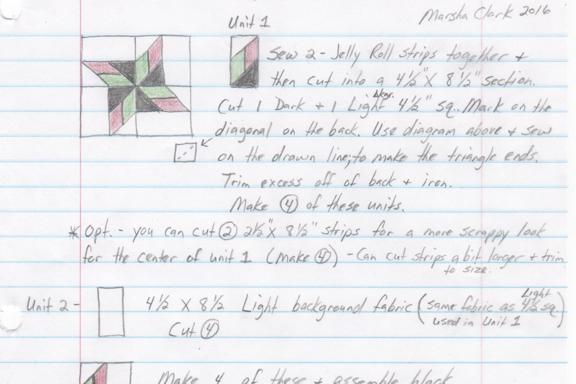 Marsha Clark 2016
Unit 1
Sew 2 - Jelly Roll strips together +
then cut into a 4½" X 8½" section.
Cut 1 Dark + 1 Light 4½" sq. Mark on the
diagonal on the back. Use diagram above + sew
on the drawn line, to make the triangle ends.
Trim excess off of back + iron.
Make ④ of these units.
* Opt. - you can cut ② 2½" X 8½" strips for a more scrappy look
for the center of unit 1 (make ④) - Can cut strips a bit larger + trim
to size.
Unit 2 - 4½ X 8½ Light background fabric (same fabric as Light 4½ sq
used in Unit 1)
Cut ④
Make 4 of these + assemble block